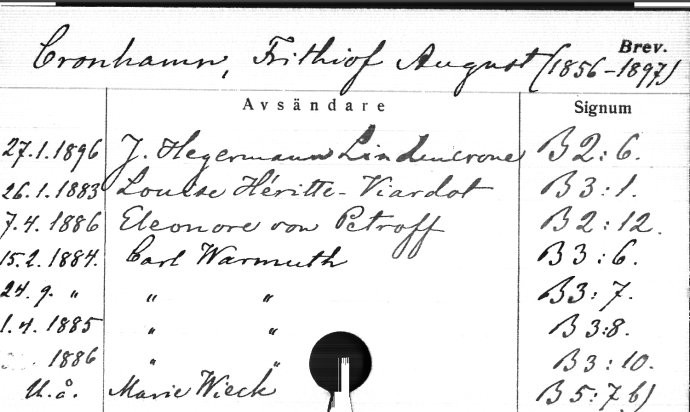 Brev.
Cronhamn, Frithiof August (1856-1897)
Avsändare Signum
27.1.1896 J. Hegermann Lindencrone B2:6.
26.1.1883 Louise Héritte-Viardot B3:1.
7.4.1886 Eleonore von Petroff B2:12.
15.2.1884. Carl Warmuth B3:6.
24.9. " " " B3:7.
1.4.1885 " " B3:8.
1886 " " B3:10.
U.å. Marie Wieck B5:7 b)